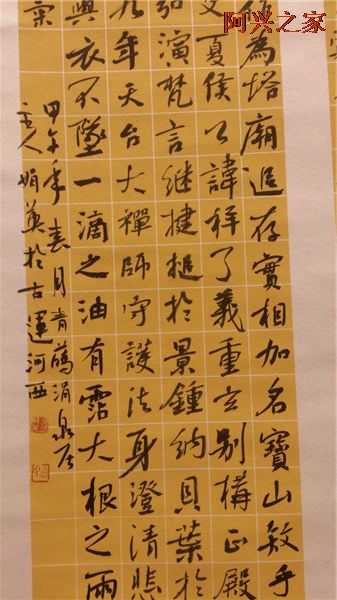 阿兴之家
為塔廟追存實相加名寶山斂手
夏侯公諱祥了義重玄別構正殿
弘演梵言継揵槌於景鍾納貝葉於
九年天台大禪師守護法身澄清悲
興衣不墜一滴之油有霑大根之雨
甲午年春月青藤涓泉居
主人娟英於古運河西